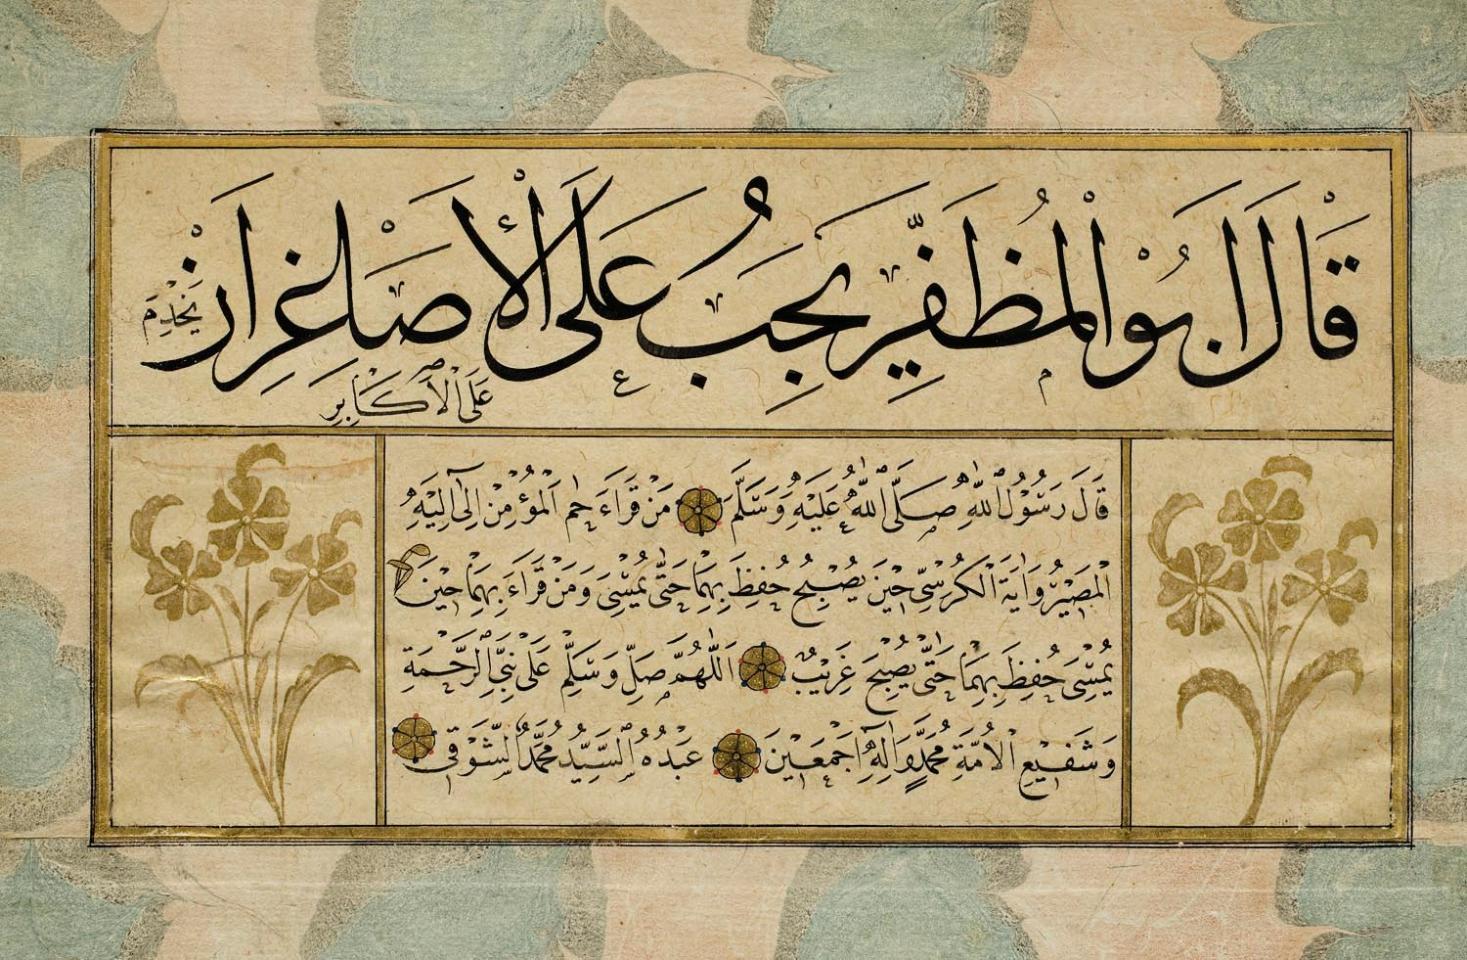 قَالَ اَبُوْ الْمُظَفَّرِ يَجِبُ عَلَى الْأَصَاغِرِ اَنْ
يَخْدِمَ
عَلَى الْاَكَابِرِ
قَالَ رَسُوْلُ اللّٰهِ صَلَّى اللّٰهُ عَلَيْهِ وَسَلَّمَ مَنْ قَرَاءَ حٰم اَلْمُؤْمِنْ اِلٰى اِلَيْهِ
الْمَصِيْرُ وَاٰيَةَ الْكُرْسِىِّ حِيْنَ يُصْبِحُ حُفِظَ بِهِمَا حَتّٰى يُمْسِىَ وَمَنْ قَرَاءَ بِهِمَا حِيْنَ
يُمْسِىَ حُفِظَ بِهِمَا حَتّٰى يُصْبِحَ غَرِيْبٌ اَللّٰهُمَّ صَلِّ وَسَلِّمْ عَلٰى نَبِىِّ الرَّحْمَةِ
وَشَفِيْعِ الْاُمَّةِ مُحَمَّدٍ وَاٰلِهِ اَجْمَعِيْنَ عَبْدُهُ السَّيِّدُ مُحَمَّدُ الشَّوْقِى